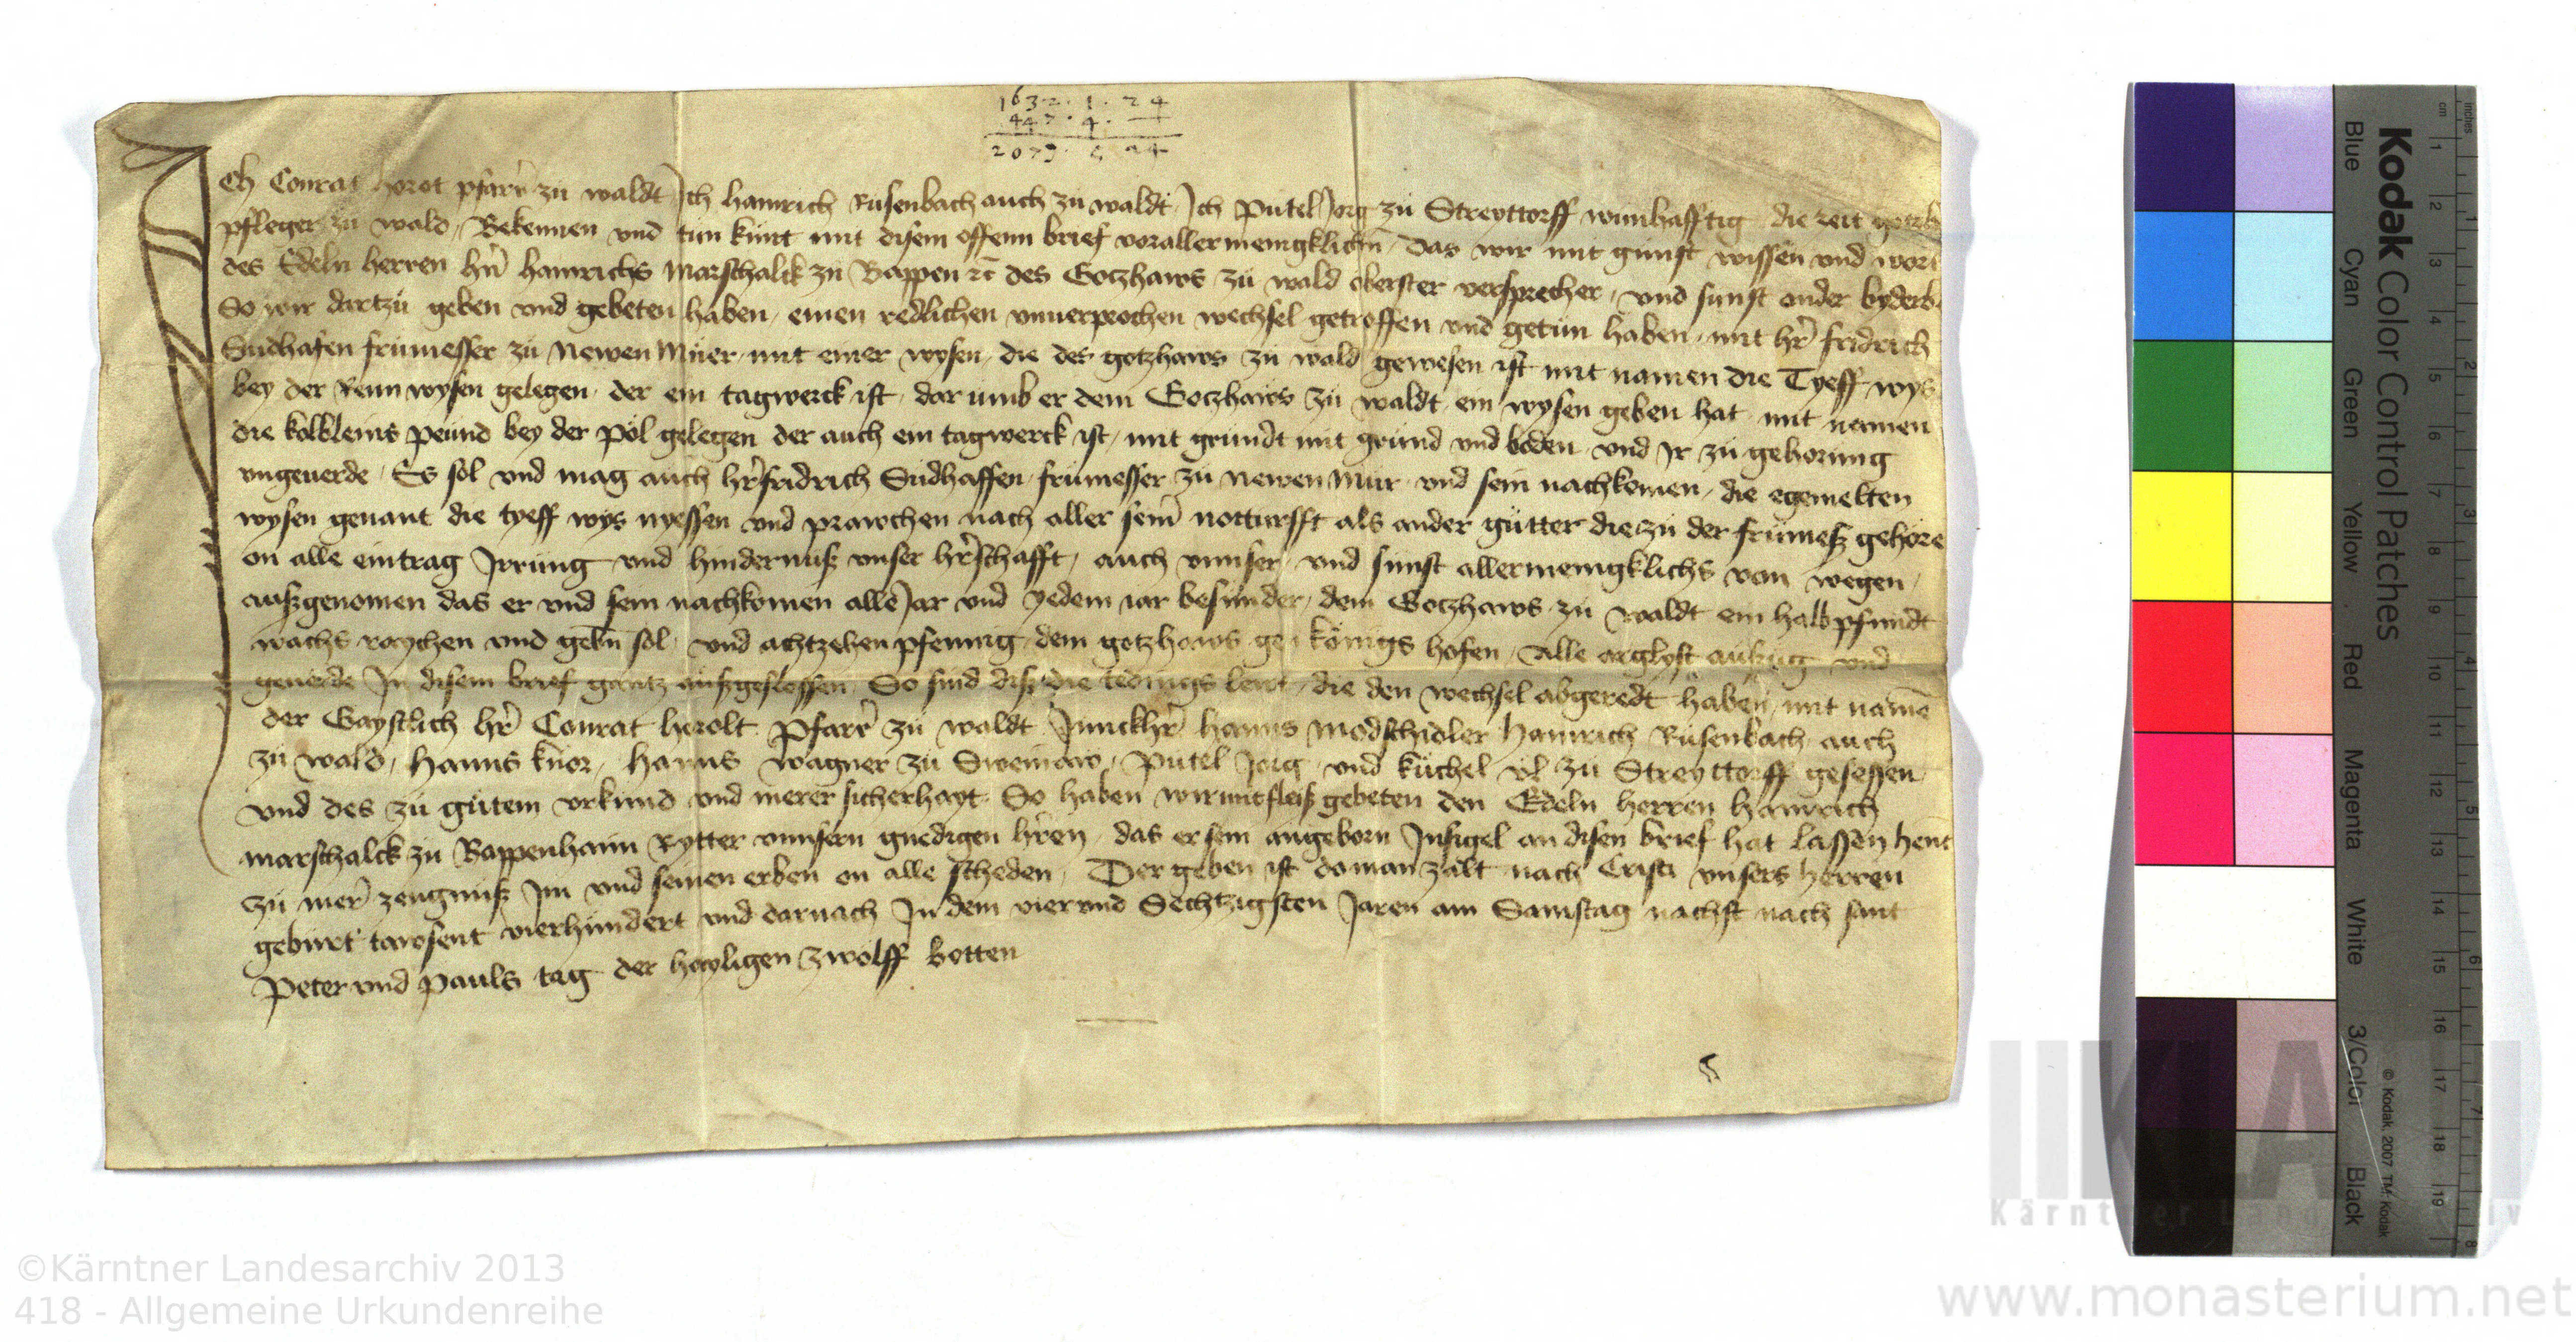 1632 . 1 . 24
447 . 4 . —
2079 . 5 24
Ich Conrat herot pfarr̄ zu waldt Ich hainrich Rusenbach auch zu waldt Ich putel Jorg zu Streyttorff wunhafftig die zeit
pfleger zu wald, Bekennen und tun kunt mit disem offenn brief vor allermenigklichn̄, das wir mit gunst wissen und wort
des Edeln herren hr̄n hainrichs Marschalck zu Bappen ꝛc des Gotzhaws zu wald oberster versprecher, und sunst ander byderb
So wir dartzu geben und gebeten haben, einen redlichen unuerprochen wechsel getroffen und getun haben, mit hr̄ fridrich
Sudhafen frümesser zu Newen Müer, mit einer wysen, die des gotzhaws zu wald gewesen ist mit namen die Tyeff wys
bey der Renn wysen gelegen, der ein tagwerck ist, dar umb er dem Gotzhaws zu waldt ein wysen geben hat, mit namen
die kolbleins peünd bey der pöl gelegen der auch ein tagwerck ist, mit grundt mit grund und boden und Ir zu gehorung
ungeuerde, Es sol und mag auch hr̄ fridrich Sudhaffen frümesser zu Newen Mur und sein nachkomen, die egemelten
wysen genant die tyeff wys nyessen und prawchen nach aller seinr̄ notturfft als ander gütter die zu der frümesz gehöre
on alle eintrag Irrung und hindernusz unser hr̄schafft, auch unnser, und sunst allermenigklichs von wegen,
auszgenomen das er und sein nachkomen alle Jar und yedem iar besunder, dem Gotzhaws zu waldt ein halb pfundt
wachs raychen und gebn̄ sol, und achtzehen pfennig dem gotzhaws gen königs hofen, Alle arglyst auszug und
geuerde In disem brief gantz auszgeslossen, So sind disz die tedings lewt, die den wechsel abgeredt haben, mit namē
der Gaystlich hr̄ Conrat herolt pfarr̄ zu waldt Junckhr̄ hanns Modschidler hainrich Rusenbach auch
zu wald, hanns knor, hanns wagner zu Sweinaw, putel Jorg und küchel ul zu Streyttorff gesessen
und des zu gutem urkund und merer sicherhayt So haben wir mit fleisz gebeten den Edeln herren hainrich
marschalck zu Bappenhaim Rytter unnsern gnedigen hr̄ren, das er sein angeborn Insigel an disen brief hat lassen henc
zu merr̄ zeugnusz Im und seinen erben on alle scheden, Der geben ist do man zalt nach Cristi unsers herren
geburt tawsent vierhundert und darnach In dem vier und Sechtzigsten Jaren am Samstag nachst nach sant
Peter und Pauls tag der hayligen zwölff botten
Kodak Color Control Patches
Blue Cyan Green Yellow Red Magenta White 3/Color Black
© Kodak, 2007 TM: Kodak
inches 1 2 3 4 5 6 7 8
cm 1 2 3 4 5 6 7 8 9 10 11 12 13 14 15 16 17 18 19
KLA
Kärntner Landesarchiv
©Kärntner Landesarchiv 2013
418 - Allgemeine Urkundenreihe
www.monasterium.net